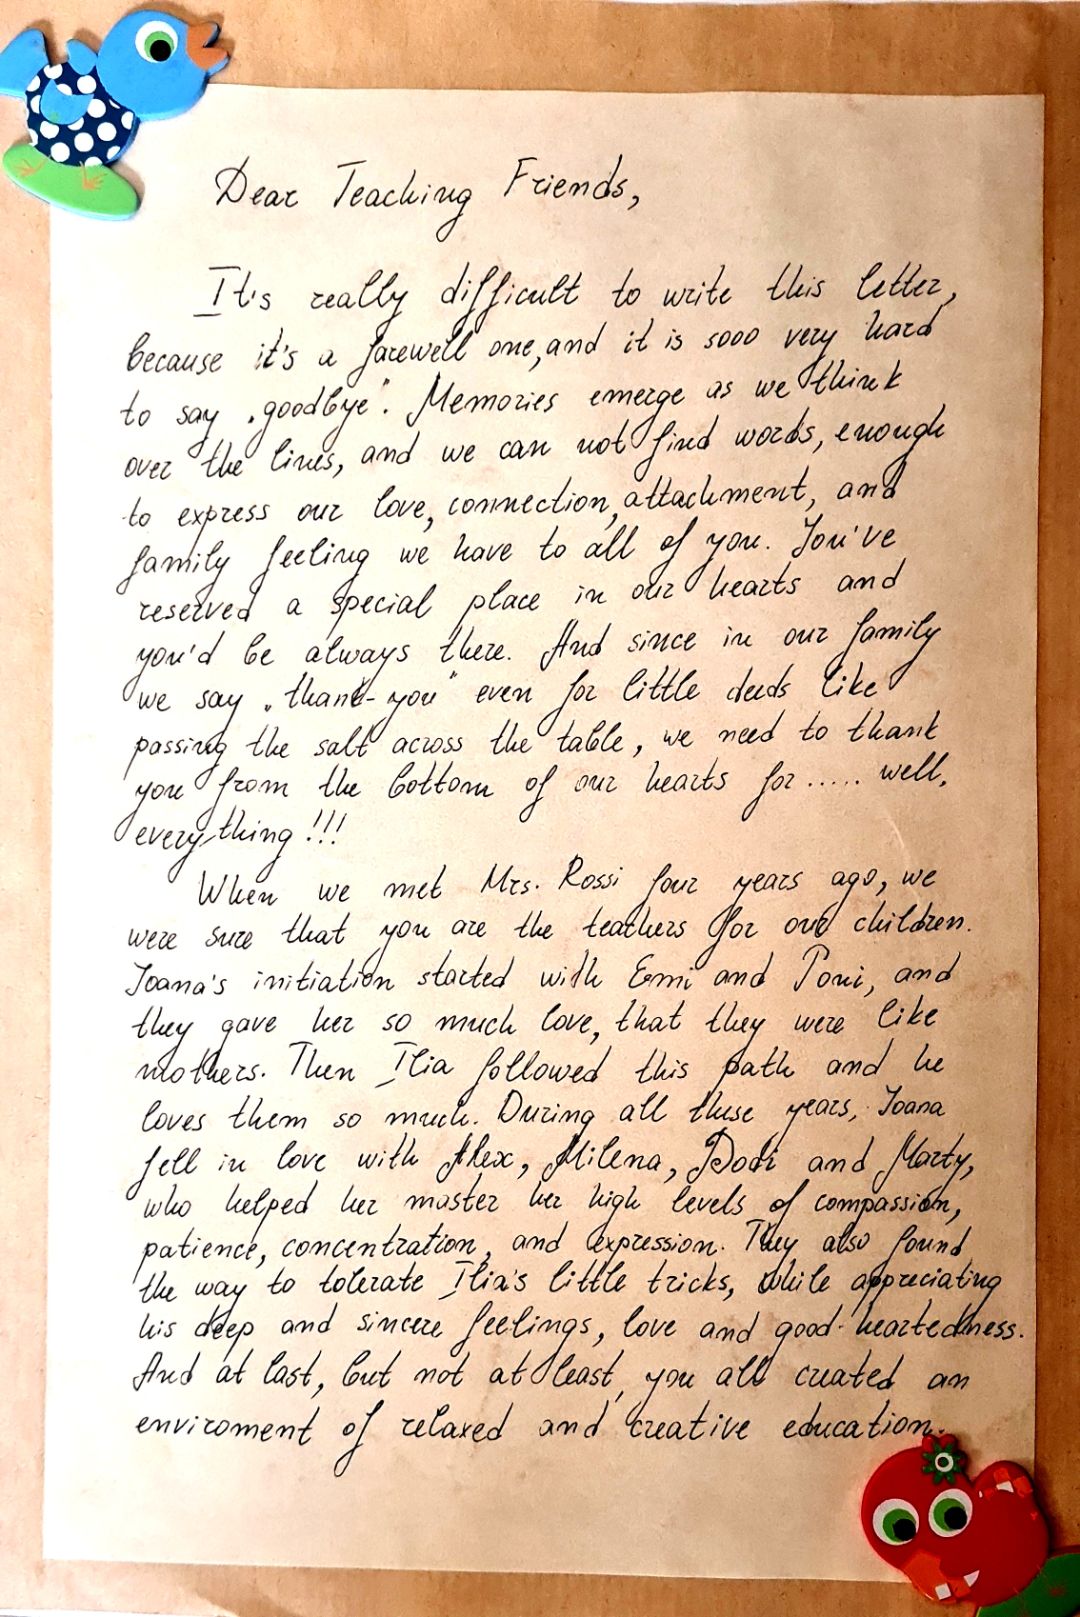 Dear Teaching Friends,
It's really difficult to write this letter,
because it's a farewell one, and it is sooo very hard
to say „goodbye". Memories emerge as we think
over the lines, and we can not find words, enough
to express our love, connection, attachment, and
family feeling we have to all of you. You've
reserved a special place in our hearts and
you'd be always there. And since in our family
we say „thank-you" even for little deeds like
passing the salt across the table, we need to thank
you from the bottom of our hearts for ..... well,
everything!!!
When we met Mrs. Rossi four years ago, we
were sure that you are the teathers for our children.
Joana's initiation started with Emi and Poni, and
they gave her so much love, that they were like
mothers. Then Ilia followed this path and he
loves them so much. During all these years, Joana
fell in love with Alex, Milena, Dodi and Marty,
who helped her master her high levels of compassion,
patience, concentration, and expression. They also found
the way to tolerate Ilia's little tricks, while appreciating
his deep and sincere feelings, love and good-heartedness.
And at last, but not at least, you all created an
enviroment of relaxed and creative education.